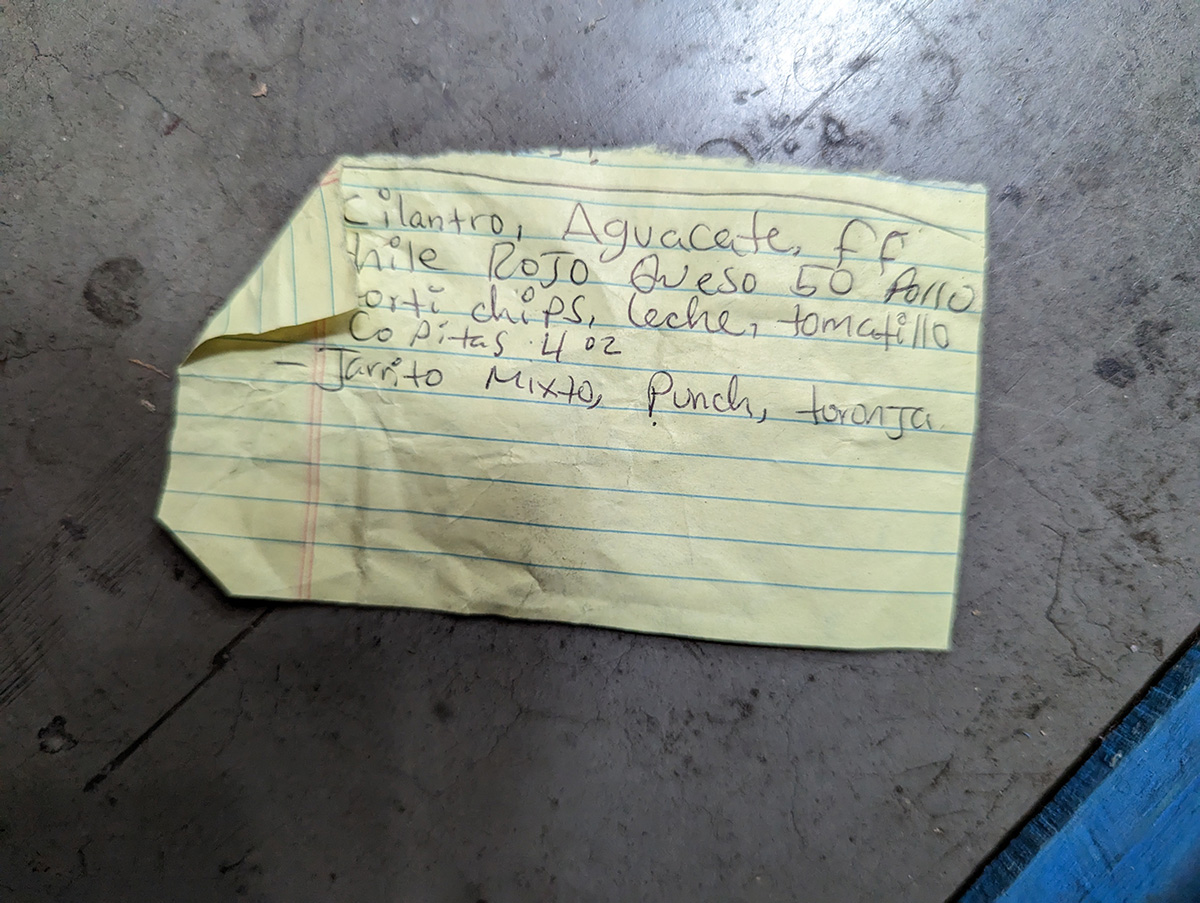 cilantro, Aguacate, ff
hile ROJO Queso 50 Pollo
orti chips, leche, tomatillo
Copitas 4 oz
- Jarrito Mixto, Punch, toronja